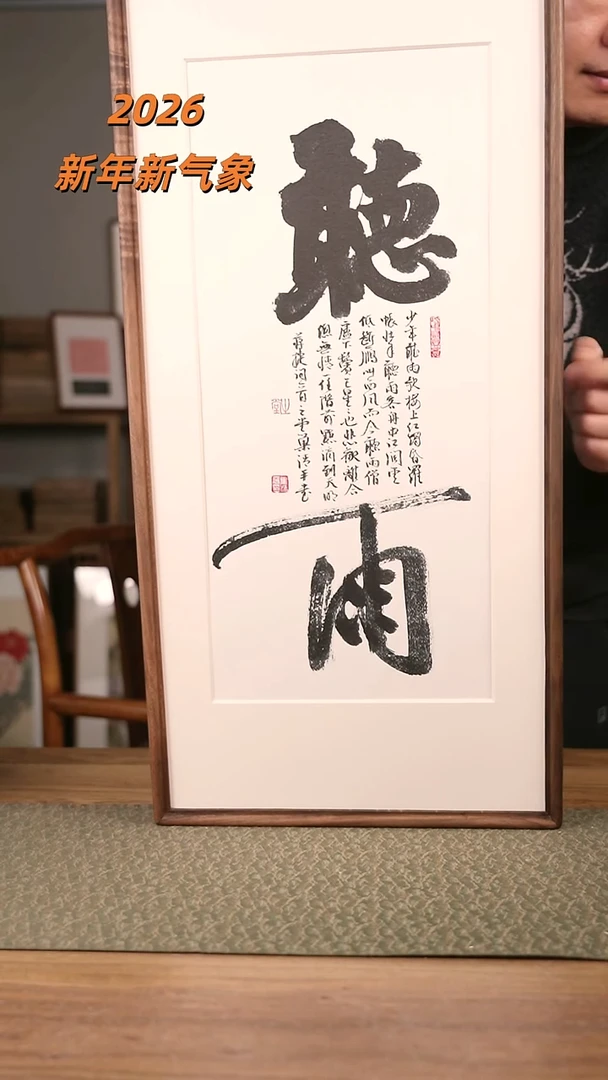 2026
新年新气象
聽
少年聽雨歌樓上紅燭昏羅
帳壯年聽雨客舟中江闊雲
低斷雁叫西風而今聽雨僧
廬下鬢已星星也悲歡離合
總無情一任階前點滴到天明
蔣捷詞
雨